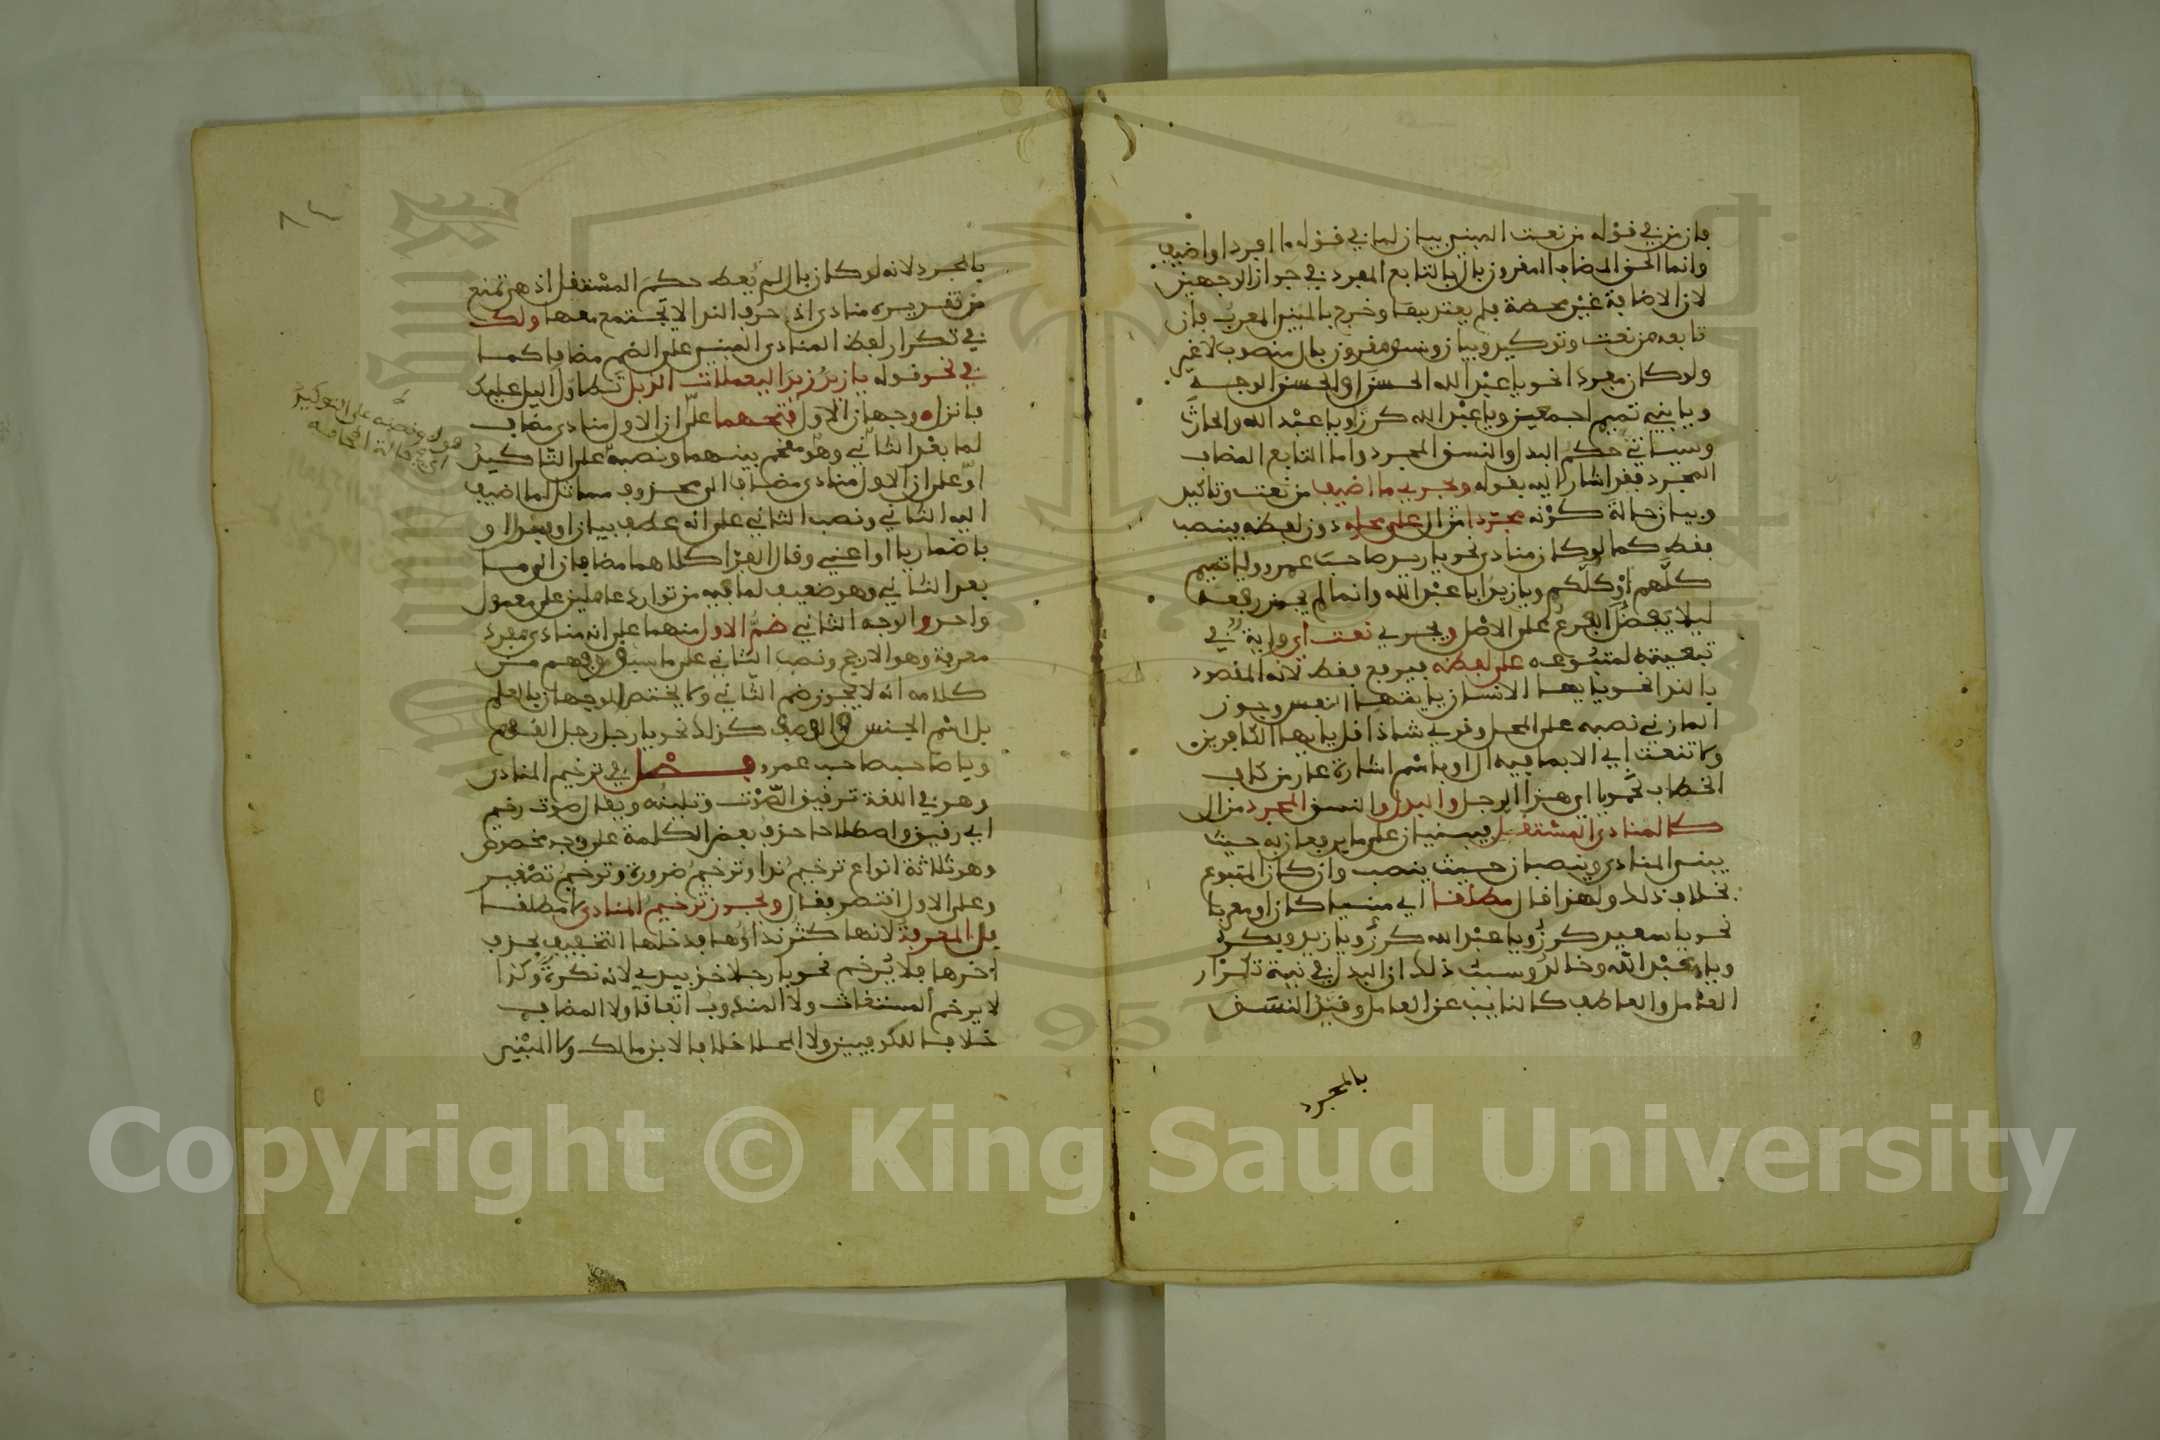 فان من في قوله من نعت المبني بيان لما في قوله ما افرد او اضيف
وانما الحق المضاف المقرون بال بالتابع المفرد في جواز الوجهين
لان الاضافة غير محضة فلم يعتد بها وخرج بالمبني المعرب فان
تابعه من نعت وتوكيد وبيان ونسق مقرون بال منصوب لا غير
ولو كان مفردا نحو يا عبد الله الحسن او الحسن الوجه
ويا بني تميم اجمعين ويا عبد الله كرز او يا عبد الله والحارث
وسياتي حكم البدل والنسق المجرد واما التابع المضاف
المجرد فقد اشار اليه بقوله ويجري ما اضيف من نعت وتاكيد
وبيان حالة كونه مجردا من ال على محله دون لفظه فينصب
فقط كما لو كان منادى نحو يا زيد صاحب عمرو ويا تميم
كلهم او كلكم ويا زيد ابا عبد الله وانما لم يجز رفعه
ليلا يفضل الفرع على الاصل ويجري نعت اي واية في
تبعيته لمتبوعه على لفظه فيرفع فقط لانه المقصود
بالندا نحو يا ايها الانسان يا ايتها النفس وجوز
المازني نصبه على المحل وقري شاذا قل يا ايها الكافرين
ولا تنعت اي الا بما فيه ال او باسم اشارة عار من كاف
الخطاب نحو يا اي هذا الرجل والبدل والنسق المجرد من ال
كالمنادى المستقل فيبنيان على ما يرفعان به حيث
يبنى المنادى وينصبان حيث ينصب وان كان المتبوع
بخلاف ذلك ولهذا قال مطلقا اي مبنيا كان او معربا
نحو يا سعيد كرز ويا عبد الله كرز ويا زيد وبكر
ويا عبد الله وخالد وسبب ذلك ان البدل في نية تكرار
العامل والعاطف كالنايب عن العامل وقيد النسق
بالمجرد
بالمجرد لانه لو كان بال لم يعط حكم المستقل اذ هو تمنع
من تقديره منادى اذ حرف الندا لا يجتمع معها ولك
في تكرار لفظ المنادى المبني على الضم مضافا كما
في نحو قوله يا زيد زيد اليعملات الذبل تطاول الليل عليك
فانزل وجهان الاول فتحهما على ان الاول منادى مضاف
لما بعد الثاني وهو مقحم بينهما ونصبه على التاكيد
او على ان الاول منادى مضاف الى محذوف مماثل لما اضيف
اليه الثاني ونصب الثاني على انه عطف بيان او بدل او
باضمار يا او اعني وقال الفرا كلاهما مضافان الى ما
بعد الثاني وهو ضعيف لما فيه من توارد عاملين على معمول
واحد والوجه الثاني ضم الاول منهما على انه منادى مفرد
معرفة وهو الارجح ونصب الثاني على ما سبق وفهم من
كلامه انه لا يجوز ضم الثاني ولا يختص الوجهان بالعلم
بل اسم الجنس والوصف كذلك نحو يا رجل رجل القوم
ويا صاحب صاحب عمرو فصل في ترخيم المنادى
وهو في اللغة ترقيق الصوت وتليينه ويقال صوت رخيم
اي رقيق واصطلاحا حذف بعض الكلمة على وجه مخصوص
وهو ثلاثة انواع ترخيم ندا وترخيم ضرورة وترخيم تصغير
وعلى الاول اقتصر فقال ويجوز ترخيم المنادى لا مطلقا
بل المعرفة لانها كثر نداؤها فدخلها التخفيف بحذف
اخرها فلا يرخم نحو يا رجلا خذ بيدي لانه نكرة وكذا
لا يرخم المستغاث ولا المندوب اتفاقا ولا المضاف
خلافا للكوفيين ولا الجملة خلافا لابن مالك ولا المبني
قوله ونصبه على التوكيد